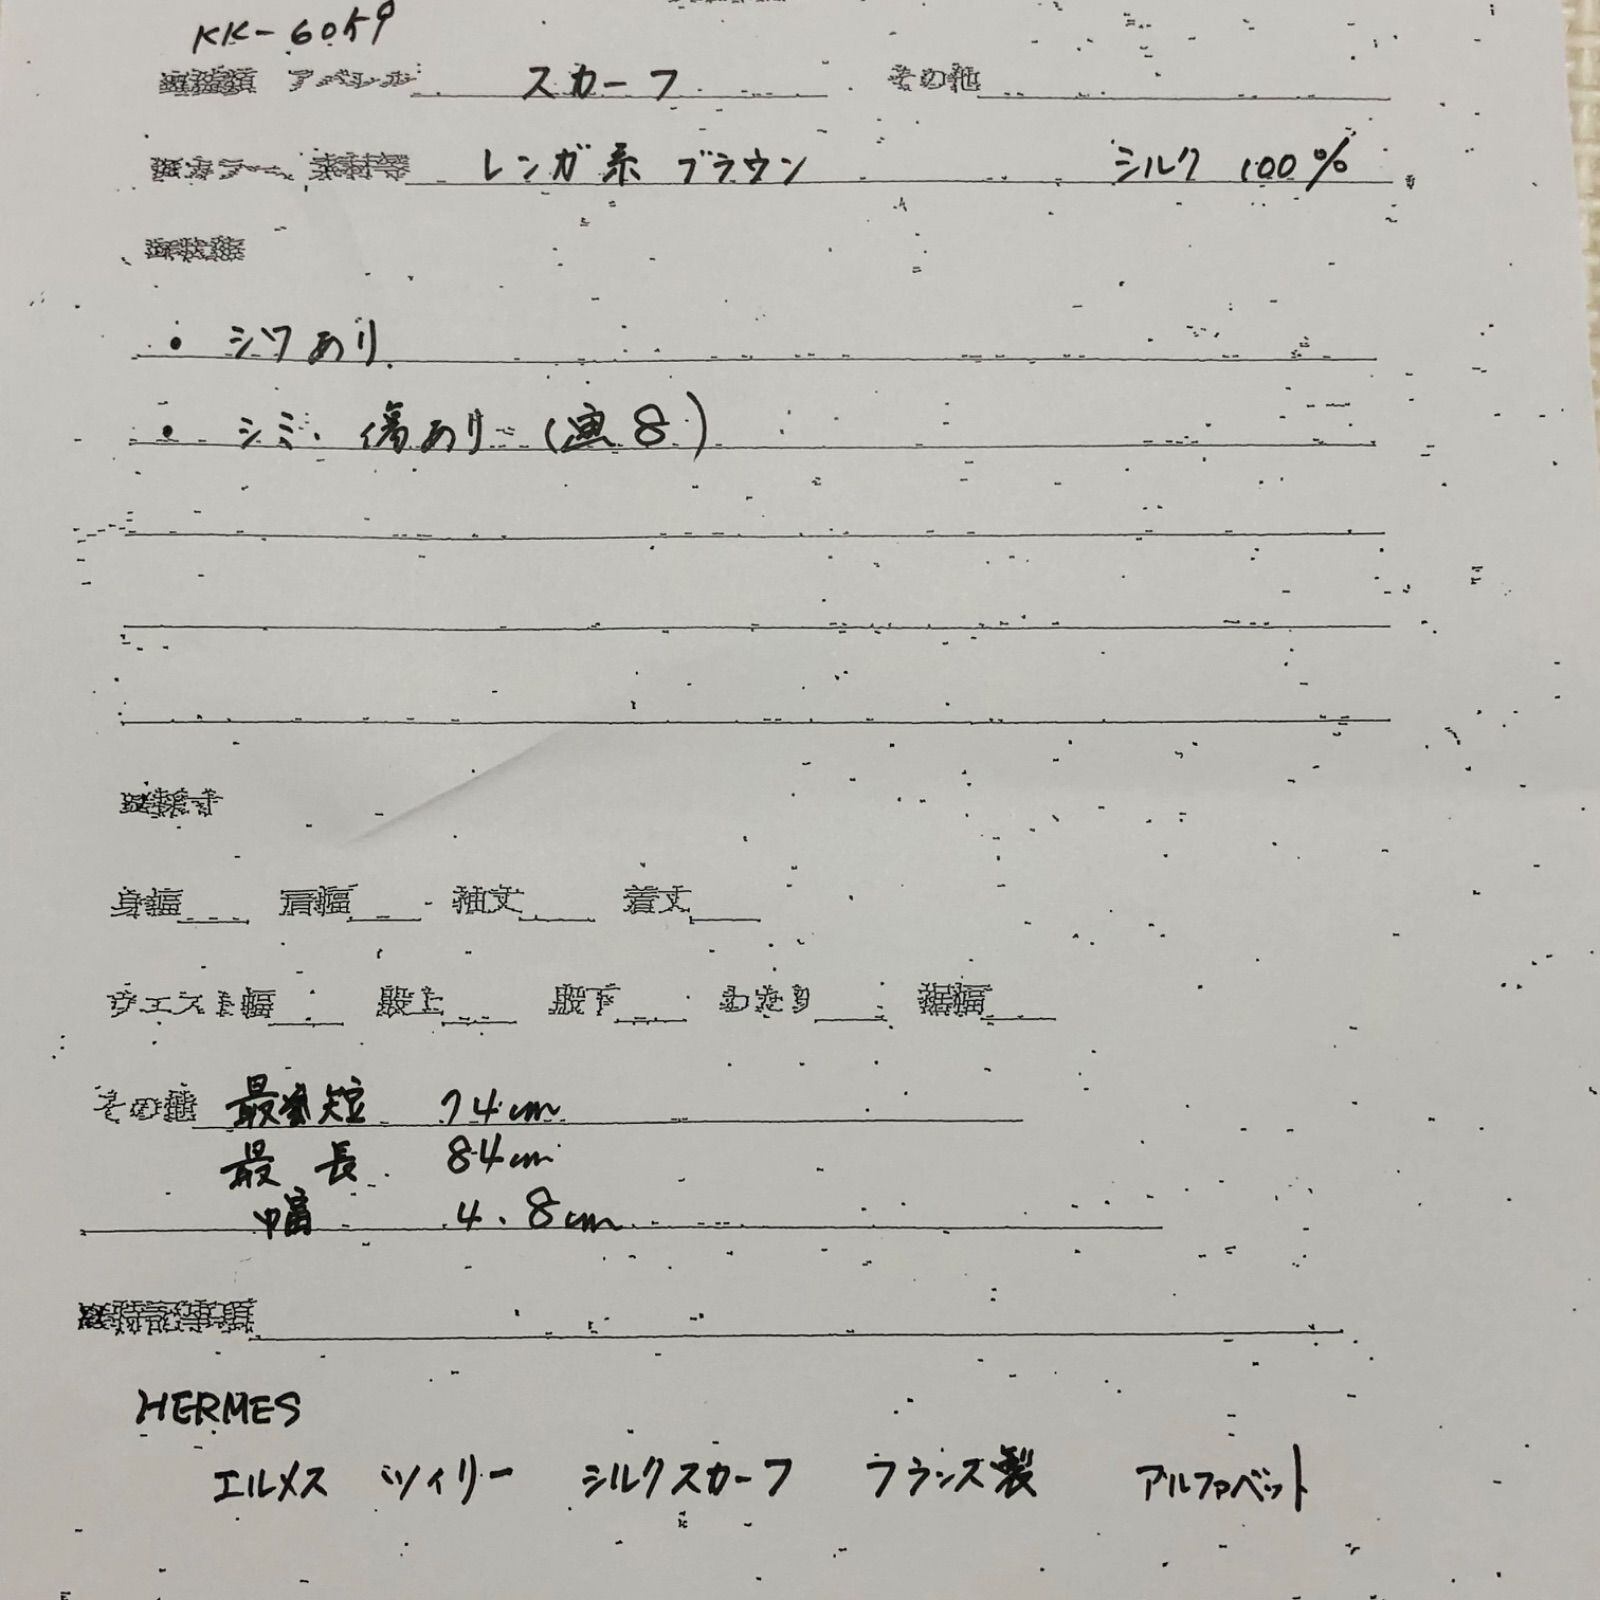 KK-6059
■種類 アパレル スカーフ その他
■カラー、素材等 レンガ系 ブラウン シルク 100%
■状態
・シワあり
・シミ、傷あり (画8)
■採寸
身幅 肩幅 袖丈 着丈
ウエスト幅 股上 股下 わたり 裾幅
その他 最短 74cm
最長 84cm
幅 4.8cm
■特記事項
HERMES
エルメス ツイリー シルクスカーフ フランス製 アルファベット